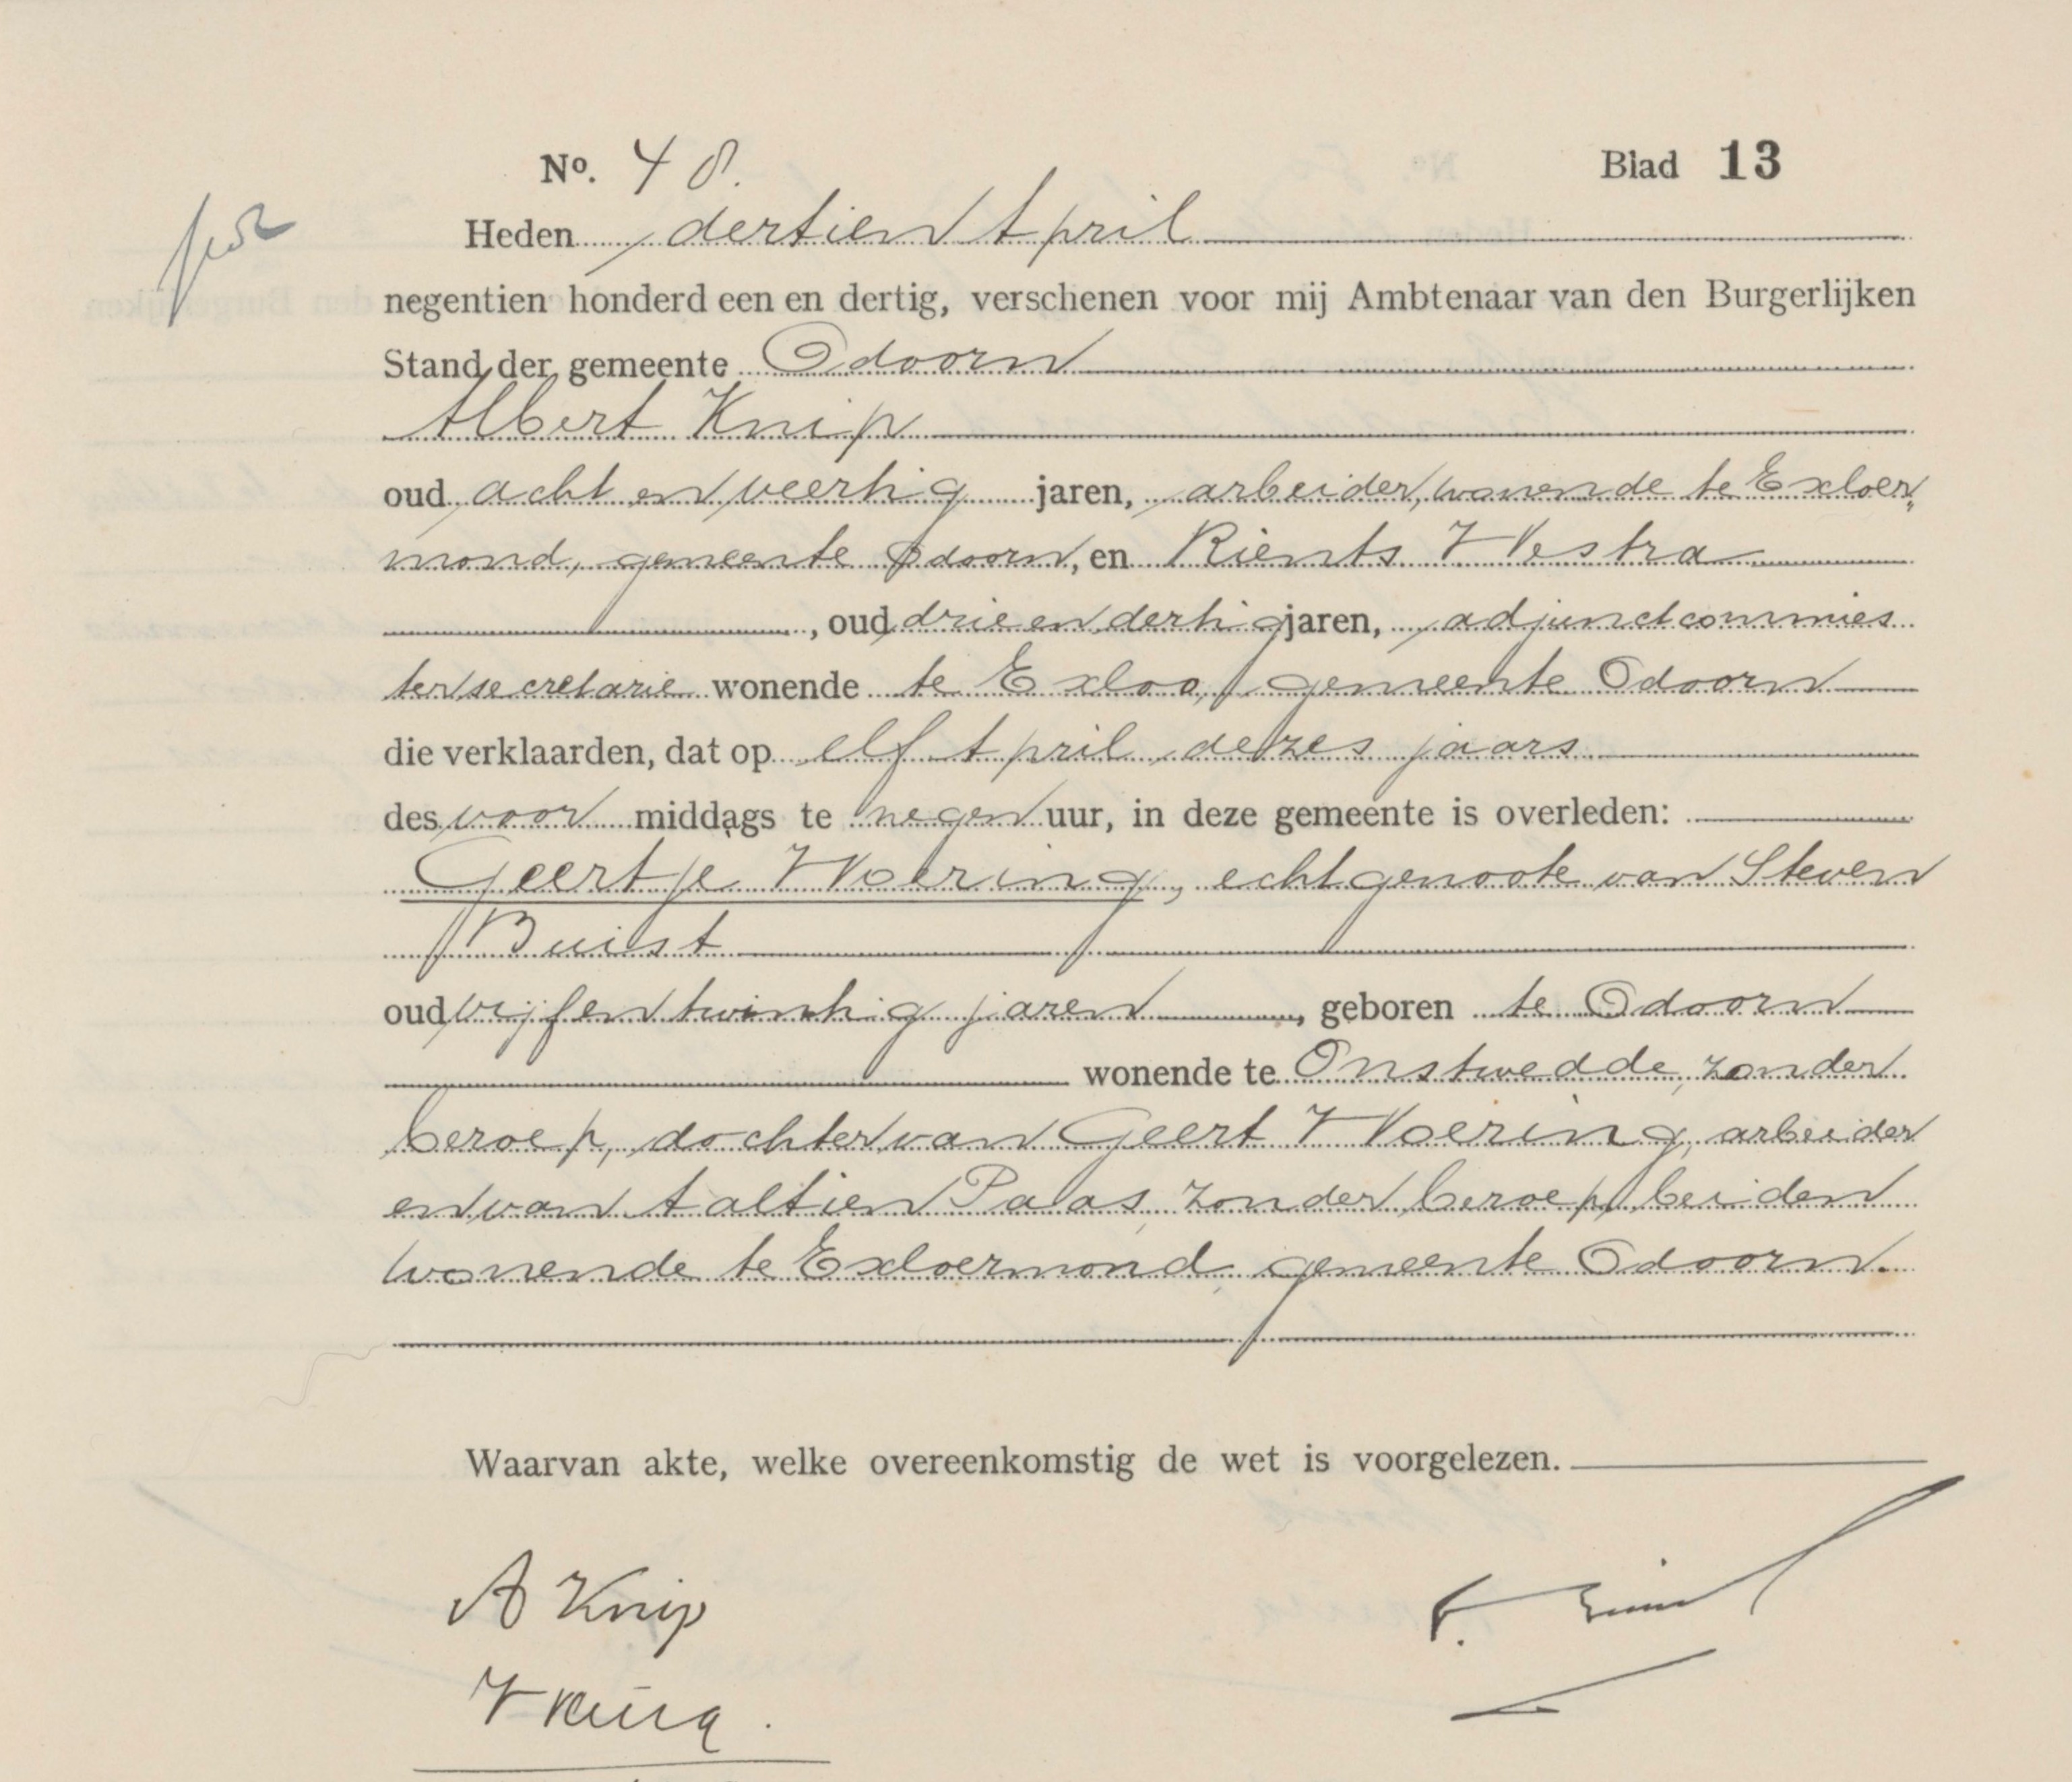 No. 48. Blad 13
Heden dertien April
negentien honderd een en dertig, verschenen voor mij Ambtenaar van den Burgerlijken
Stand der gemeente Odoorn
Albert Knip
oud acht en veertig jaren, arbeider, wonende te Exloër„
mond, gemeente Odoorn, en Rients Westra
, oud drie en dertig jaren, adjunct commies
ter secretarie wonende te Exloo, gemeente Odoorn
die verklaarden, dat op elf April dezes jaars
des voor middags te negen uur, in deze gemeente is overleden:
Geertje Woering, echtgenoote van Steven
Buist
oud vijf en twintig jaren, geboren te Odoorn
wonende te Onstwedde, zonder
beroep, dochter van Geert Woering, arbeider
en van Aaltien Paas, zonder beroep, beiden
wonende te Exloërmond, gemeente Odoorn.
Waarvan akte, welke overeenkomstig de wet is voorgelezen.
A Knip